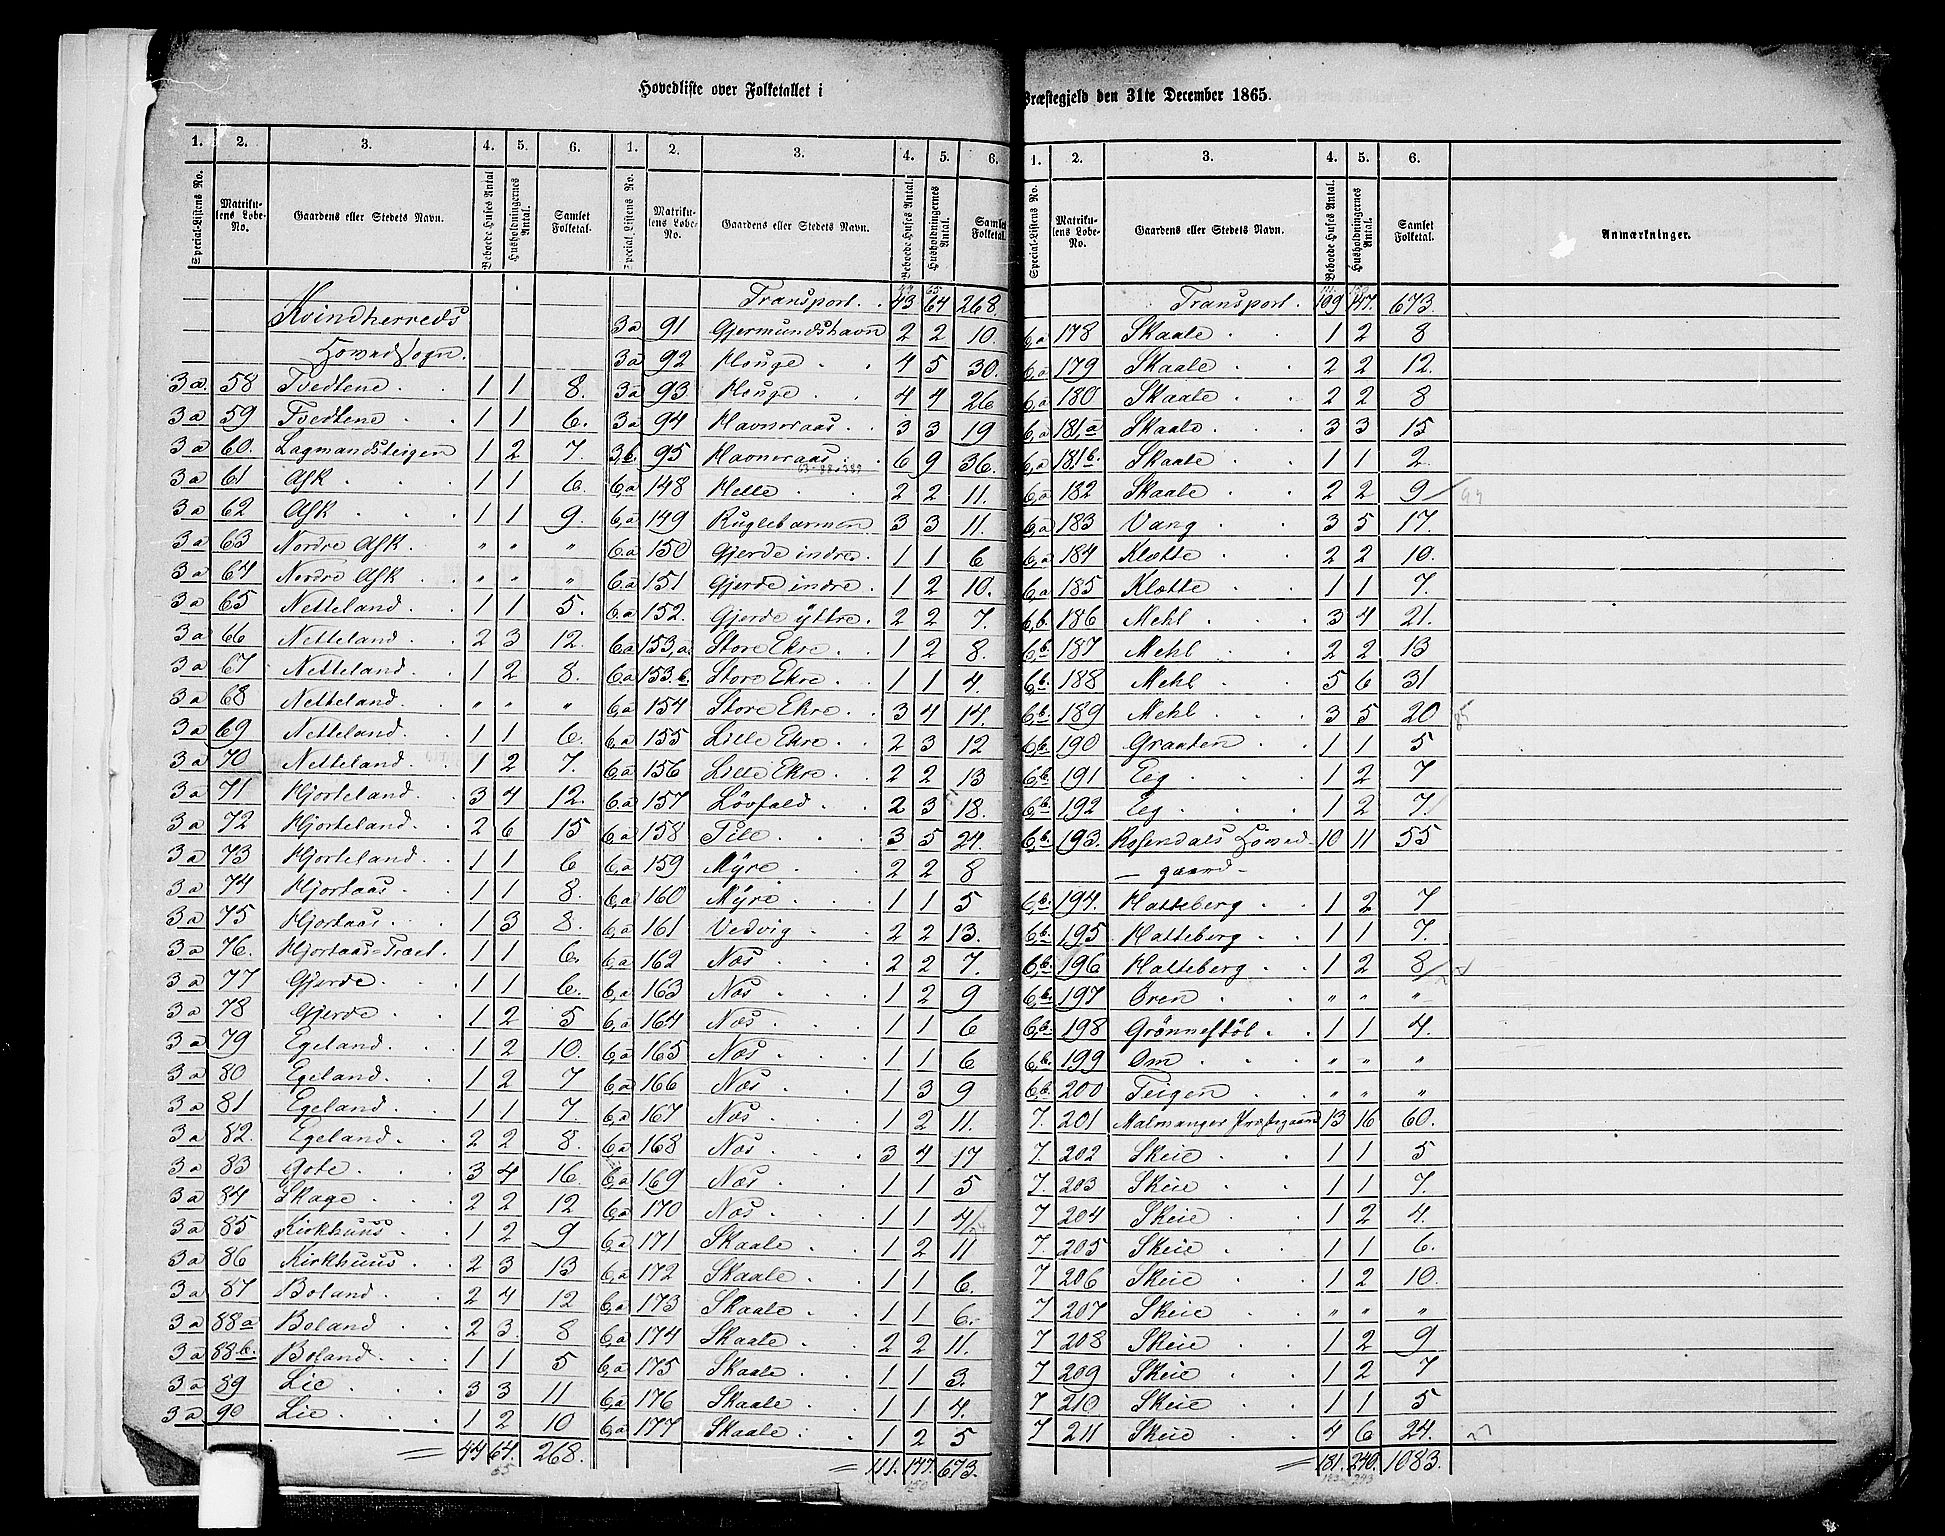 Hovedliste over Folketallet i
1. 2. 3. 4. 5. 6. 1. 2. 3. 4. 5. 6.
Special-Listens No. Matrikulens Løbe-No. Gaardens eller Stedets Navn. Beboede Huses Antal Husholdningernes Antal. Samlet Folketal. Special-Listens No. Matrikulens Løbe-No. Gaardens eller Stedets Navn. Beboede Huses Antal. Husholdningernes Antal. Samlet Folketal.
Kvindherreds
Hovedsogn.
3a 58 Tvedtene . 1 1 8.
3a 59 Tvedtene . 1 1 6.
3a 60. Lagmandsteigen 1 2 7.
3a 61 Ask . . . 1 1 6
3a 62 Ask . . . 1 1 9.
3a 63 Nordre Ask . " " "
3a 64 Nordre Ask . " " "
3a 65 Netteland . 1 1 5.
3a 66 Netteland . 2 3 12.
3a 67 Netteland . 1 2 8.
3a 68 Netteland . " " "
3a 69 Netteland . 1 1 6.
3a 70 Netteland . 1 2 7.
3a 71 Hjorteland . 3 4 12.
3a 72 Hjorteland . 2 6 15
3a 73 Hjorteland . 1 1 6
3a 74 Hjortaas . 1 1 8.
3a 75 Hjortaas . 1 3 8.
3a 76. Hjortaas-Træet . 1 1 6.
3a 77 Gjerde . . 1 1 6.
3a 78 Gjerde . . 1 2 5
3a 79 Egeland . . 1 2 10.
3a 80 Egeland . . 1 2 7
3a 81 Egeland . . 1 1 7.
3a 82. Egeland . . 2 2 8.
3a 83 Gote . . . 3 4 16.
3a 84 Skage . . . 2 2 12
3a 85 Kirkhuus . . 1 2 9
3a 86 Kirkhuus . . 2 3 13
3a 87 Boland . . 2 4 12
3a 88a Boland . . 2 3. 8
3a 88b. Boland . . 1 1 5
3a 89 Lie . . . 3 3 11
3a 90 Lie . . . 1 2 10
= 44 64. 268.
65
49 65
Transport. . 43 64 268.
3a 91 Gjermundshavn 2 2 10.
3a 92 Houge . . 4 5 30.
3a 93 Houge . . 4 4 26
3a 94 Havneraas . 3 3 19
3,b. 95 Havneraas . 6 9 36.
6,a 148 Helle . . 2 2 11.
6,a 149 Ruglebarmen 3 3 11.
6a 150 Gjerde indre . 1 1 6
6a 151 Gjerde indre . 1 2 10.
6a 152. Gjerde ÿttre . 2 2 7.
6a 153,a Store Ekre . 1 2 8.
6a 153.b. Store Ekre . 1 1 4.
6,a 154 Store Ekre . 3 4 14.
6a 155 Lille Ekre . 2 3 12
6,a 156 Lille Ekre . 2 2 13
6a 157 Lövfald . . 2 3 18.
6,a 158 Tile . . . 3 5 24.
6,a 159 Mÿre . . 2 2 8
6,a 160 Mÿre . . 1 1 5
6,a 161 Vedvig . . 2 2 13.
6,a 162 Næs . . 2 2 7.
6,a 163 Næs . . 1 2 9
6,a 164 Næs . . 1 1 6
6,a 165 Næs . . 1 1 6
6,a 166 Næs . . 1 3 9
6,a 167 Næs . . 1 2 11.
6,a 168 Næs . . 3 4 17
6,a 169 Næs . . 1 1 5
6,a 170 Næs . . 1 1 4/
6,a 171 Skaale . . 1 2 11
6,a 172 Skaale . . 1 1 6.
6,a 173 Skaale . . 1 1 6.
6,a 174 Skaale . . 2 2 11.
6,a 175 Skaale . . 1 1 3.
6,a 176 Skaale . . 1 1 4.
6,a 177 Skaale . . 1 2 5
= 111. 147. 673.
150
Præstegjeld den 31te December 1865.
1. 2. 3. 4. 5. 6.
Special-Listens No. Matrikulens Løbe-No. Gaardens eller Stedets Navn. Beboede Huses Antal. Husholdningernes Antal. Samlet Folketal. Anmærkninger.
111. 150
Transport. . 109 147. 673.
6,a 178 Skaale . . 1 2 8
6,a 179 Skaale . . 2 2 12.
6,a 180 Skaale . . 2 2 8
6,a 181,a Skaale . . 3 3 15
6,a 181b. Skaale . . 1 1 2.
6a 182 Skaale . . 2 2 9/
6,a 183 Vang . . 3 5 17.
6,a 184 Klætte . . 2 2 10.
6,a 185 Klætte . . 1 1 7.
6,b. 186 Mehl . . . 3 4 21.
6,b 187 Mehl . . . 2 2 13
6,b. 188 Mehl . . . 5 6 31
6,b. 189 Mehl . . . 3 5 20
6,b. 190 Graaten . . 1 1 5
6,b. 191 Eeg . . . 1 2 7
6,b. 192 Eeg . . . 1 2 7.
6,b. 193. Rosendals Hoved- 10 11 55
– gaard –
6,b. 194. Hatteberg . . 1 2 7
6,b. 195 Hatteberg . . 1 1 7.
6,b. 196 Hatteberg . . 1 2 8/
6,b. 197 Ören . . " " "
6,b. 198 Grönnestöl . . 1 1 4.
6,b. 199 Om . . . " " "
6,b. 200 Teigen . . " " "
7. 201 Malmanger Præstegaard 13 16 60.
7. 202 Skeie . . 1 1 5
7. 203 Skeie . . 1 1 7.
7 204 Skeie . . 1 2 4.
7. 205 Skeie . . 1 1 6.
7 206 Skeie . . 1 2 10.
7 207 Skeie . . " " "
7 208 Skeie . . 1 2 9
7 209 Skeie . . 1 2 7
7 210 Skeie . . 1 1 5
7 211 Skeie . . 4 6 24.
= 181. 240. 1083.
183 243